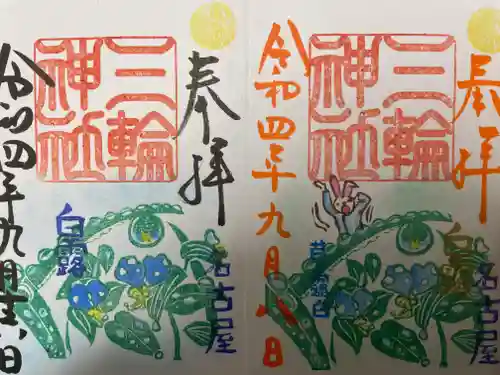 奉拝
三輪神社
白露
名古屋
令和四年九月
日
奉拝
三輪神社
白露
名古屋
草露白
令和四年九月八日